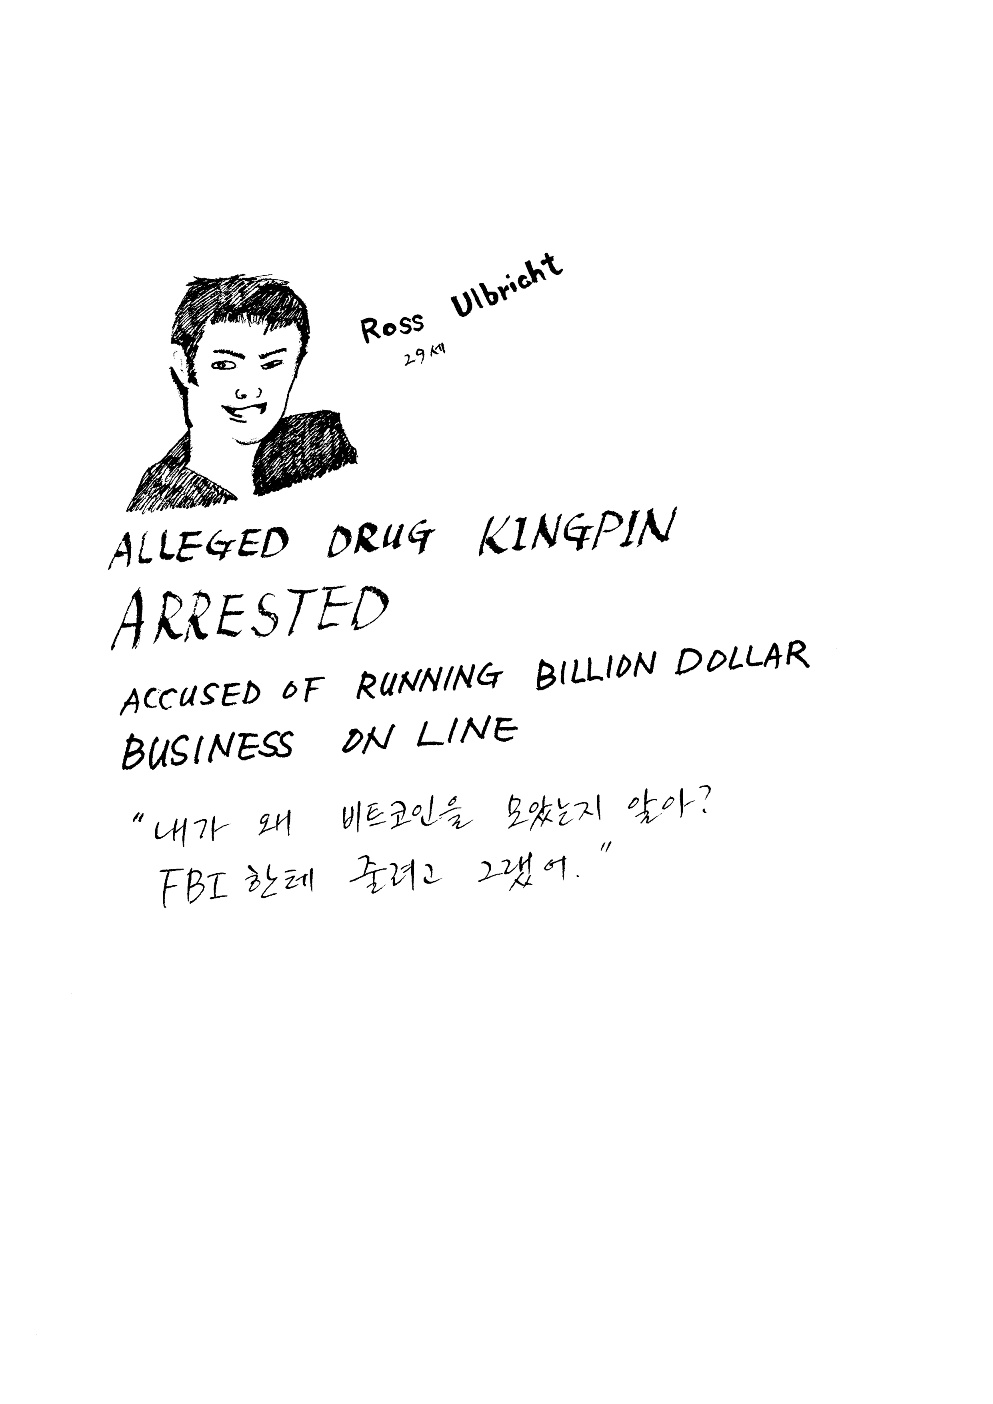 Ross Ulbricht
29세
ALLEGED DRUG KINGPIN
ARRESTED
ACCUSED OF RUNNING BILLION DOLLAR
BUSINESS ON LINE
"내가 왜 비트코인을 모았는지 알아?
FBI 한테 줄려고 그랬어."